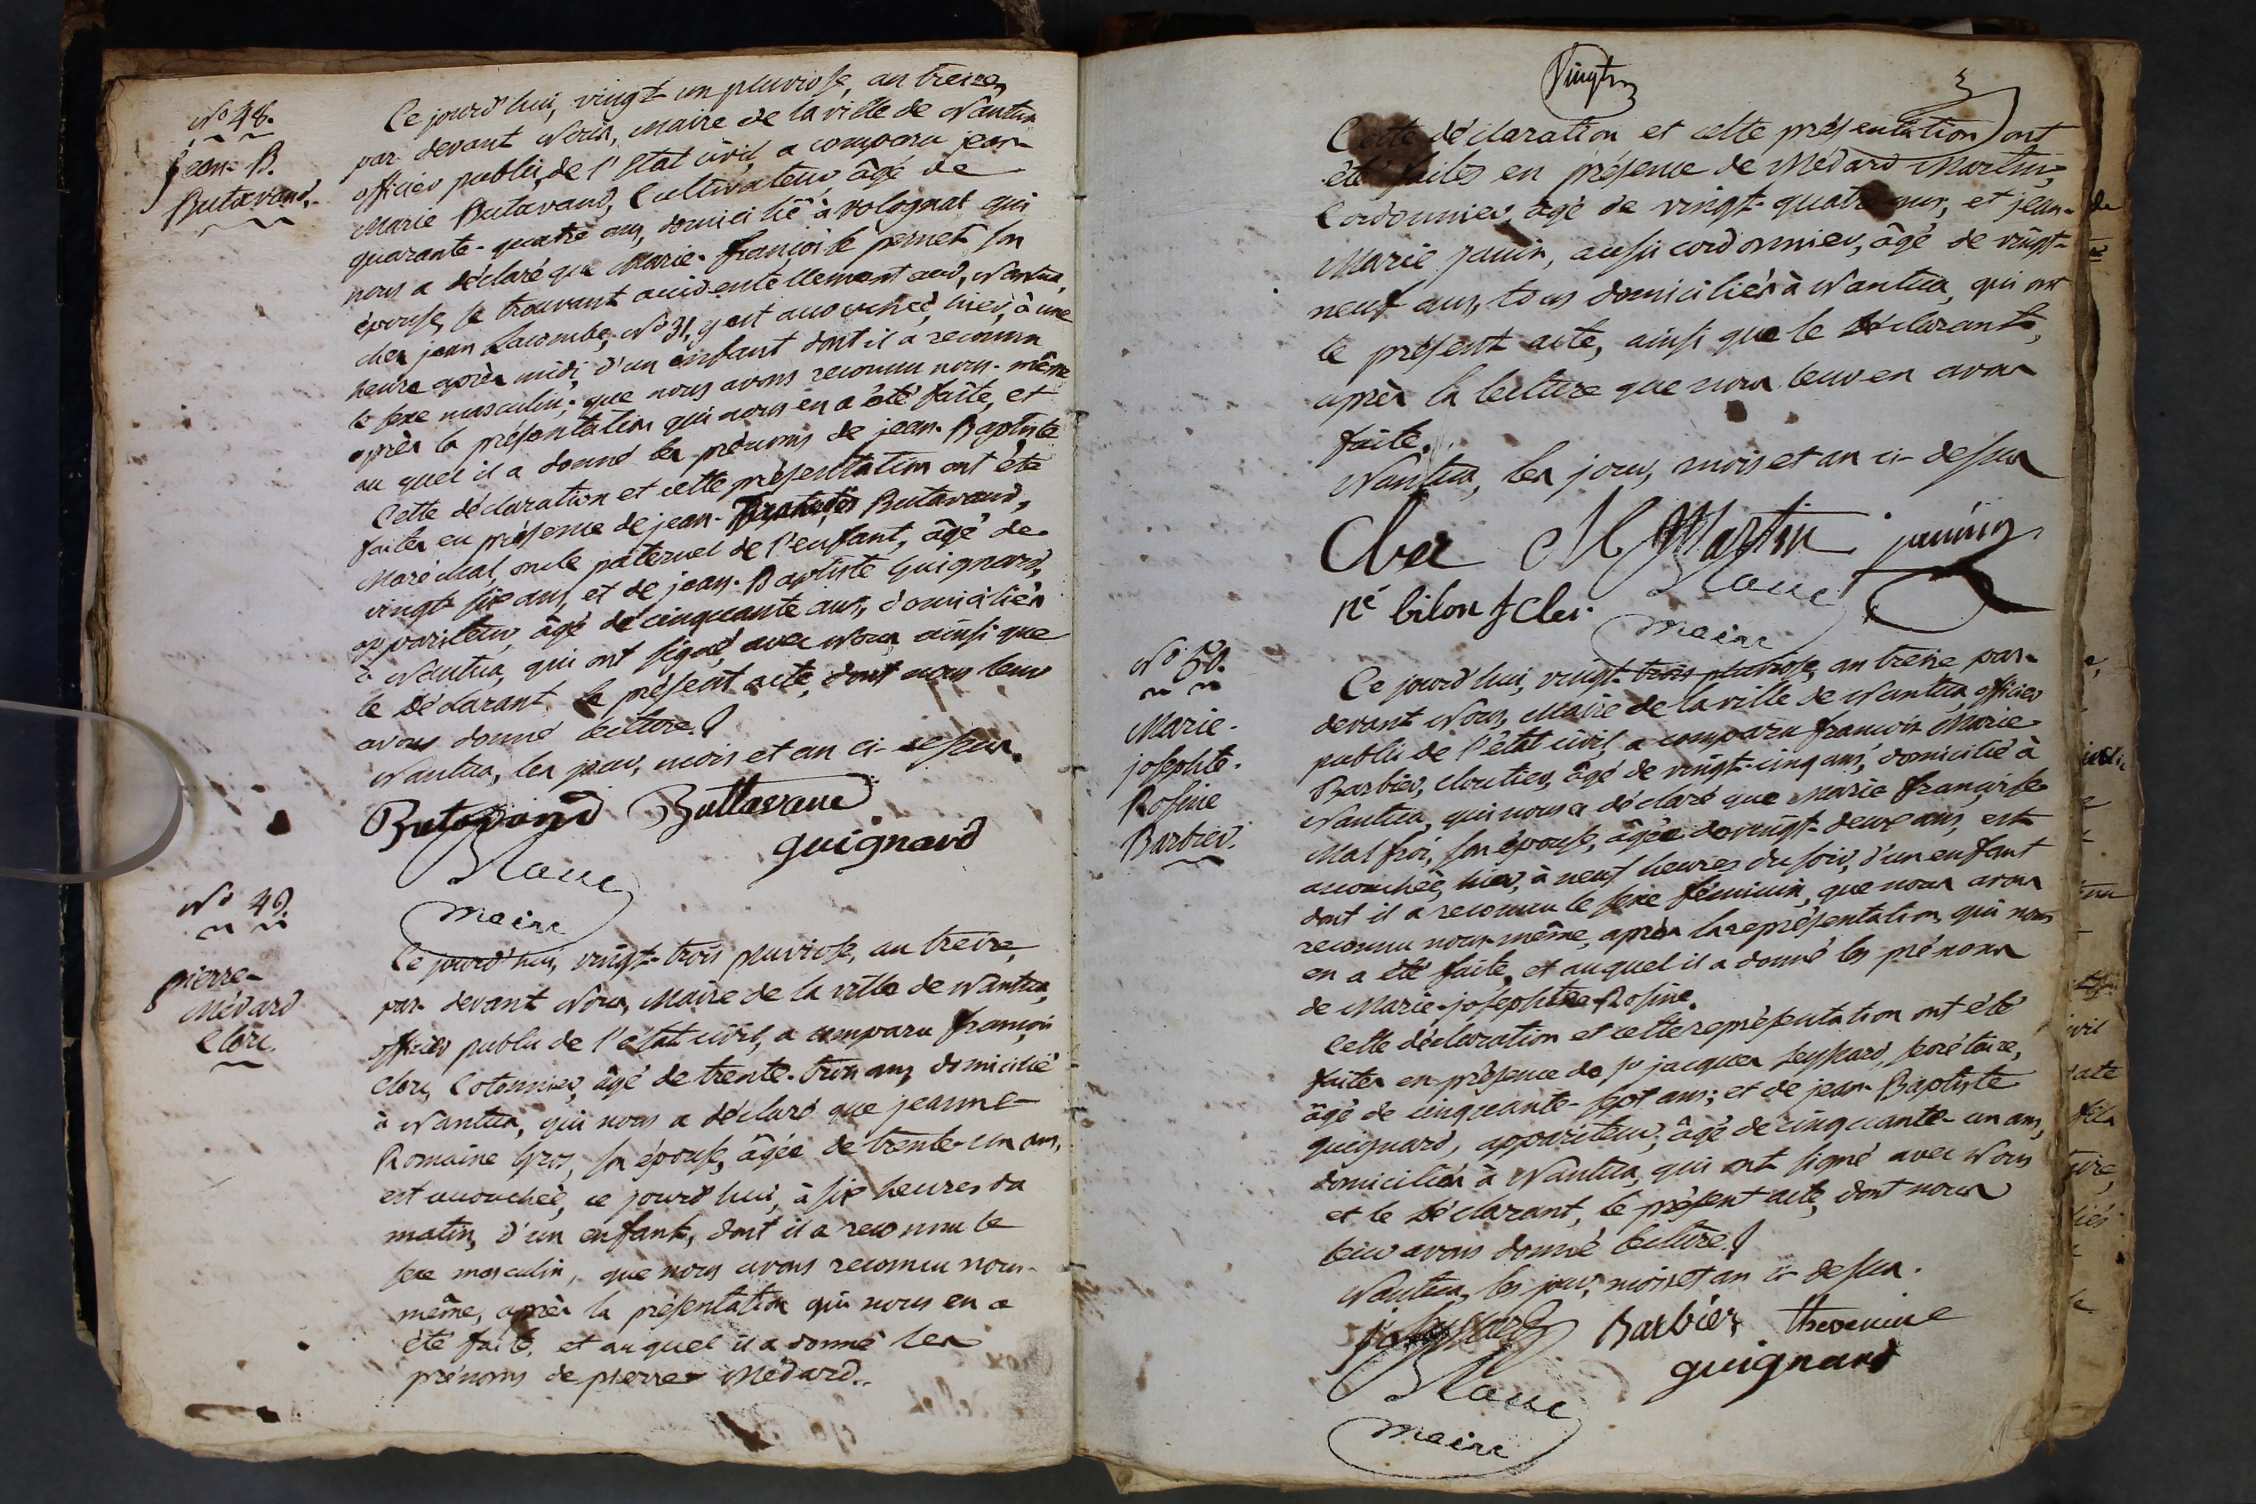 N.º 48.
Jean-B.
Butavand.
Ce jourd'hui, vingt un pluviose, an treize,
par devant Nous, Maire de la ville de Nantua
officier public de l'Etat civil, a comparu jean-
Marie Butavand, Cultivateur, âgé de
quarante-quatre ans, domicilié à volognat qui
nous a déclaré que Marie-françoise pernet son
épouse, se trouvant accidentellement aud. Nantua,
chez jean Lacombe, N.º 31, y est accouchée, hier, à une
heure après midi, d'un enfant dont il a reconnu
le sexe masculin, que nous avons reconnu nous-même
après la présentation qui nous en a été faite, et
au quel il a donné les prénoms de jean-Baptiste
Cette déclaration et cette présentation ont été
faites en présence de jean- Butavand,
Maréchal, oncle paternel de l'enfant, âgé de
vingt-six ans, et de jean-Baptiste Guignard,
appariteur, âgé de cinquante ans, domiciliés
à Nantua, qui ont signé avec Nous ainsi que
le Déclarant le présent acte, dont nous leur
avons donné lecture.
Nantua, les jour, mois et an ci-dessus.
Butavand Buttavand
guignard
Blanc
maire
N.º 49.
pierre-
Médard
Clerc
Ce jourd'hui, vingt-trois pluviose, an treize,
par devant Nous, Maire de la ville de Nantua,
officier public de l'état civil, a comparu françois
Clerc, Cotonnier, âgé de trente-trois ans, domicilié
à Nantua, qui nous a déclaré que jeanne-
Romaine Gros, son épouse, âgée de trente-un ans,
est accouchée, ce jourd'hui, à six heures du
matin, d'un enfant, dont il a reconnu le
sexe masculin, que nous avons reconnu nous-
même, après la présentation qui nous en a
été faite, et auquel il a donné les
prénoms de pierre-Médard.
Vingt
Cette déclaration et cette présentation ont
été faites en présence de Médard Martin,
Cordonnier, âgé de vingt-quatre ans, et jean-
Marie janin, aussi cordonnier, âgé de vingt-
neuf ans, tous domiciliés à Nantua, qui ont
le présent acte, ainsi que le Déclarant,
après la lecture que nous leur en avons
faite.
Nantua, les jour, mois et an ci-dessus
Cler M Martin janin
Blanc
maire
N.º 50.
Marie-
josephte-
Rosine
Barbier.
Ce jourd'hui, vingt-trois pluviose, an treize par-
devant Nous, Maire de la ville de Nantua, officier
public de l'état civil, a comparu françois Marie
Barbier, cloutier, âgé de vingt-cinq ans, domicilié à
Nantua, qui nous a déclaré que Marie françoise
Malfroi, son épouse, âgée de vingt-deux ans, est
accouchée, hier, à neuf heures du soir, d'un enfant
dont il a reconnu le sexe féminin, que nous avons
reconnu nous-même, après la représentation qui nous
en a été faite, et auquel il a donné les prénoms
de Marie-josephte-Rosine.
Cette déclaration et cette représentation ont été
faites en présence de jacques Seyssard, secrétaire,
âgé de cinquante-sept ans; et de jean-Baptiste
guignard, appariteur, âgé de cinquante-un ans,
domiciliés à Nantua, qui ont signé avec Nous
et le Déclarant, le présent acte, dont nous
leur avons donné lecture.
Nantua, les jour, mois et an ci-dessus.
Barbier thevenine
guignard
Blanc
maire